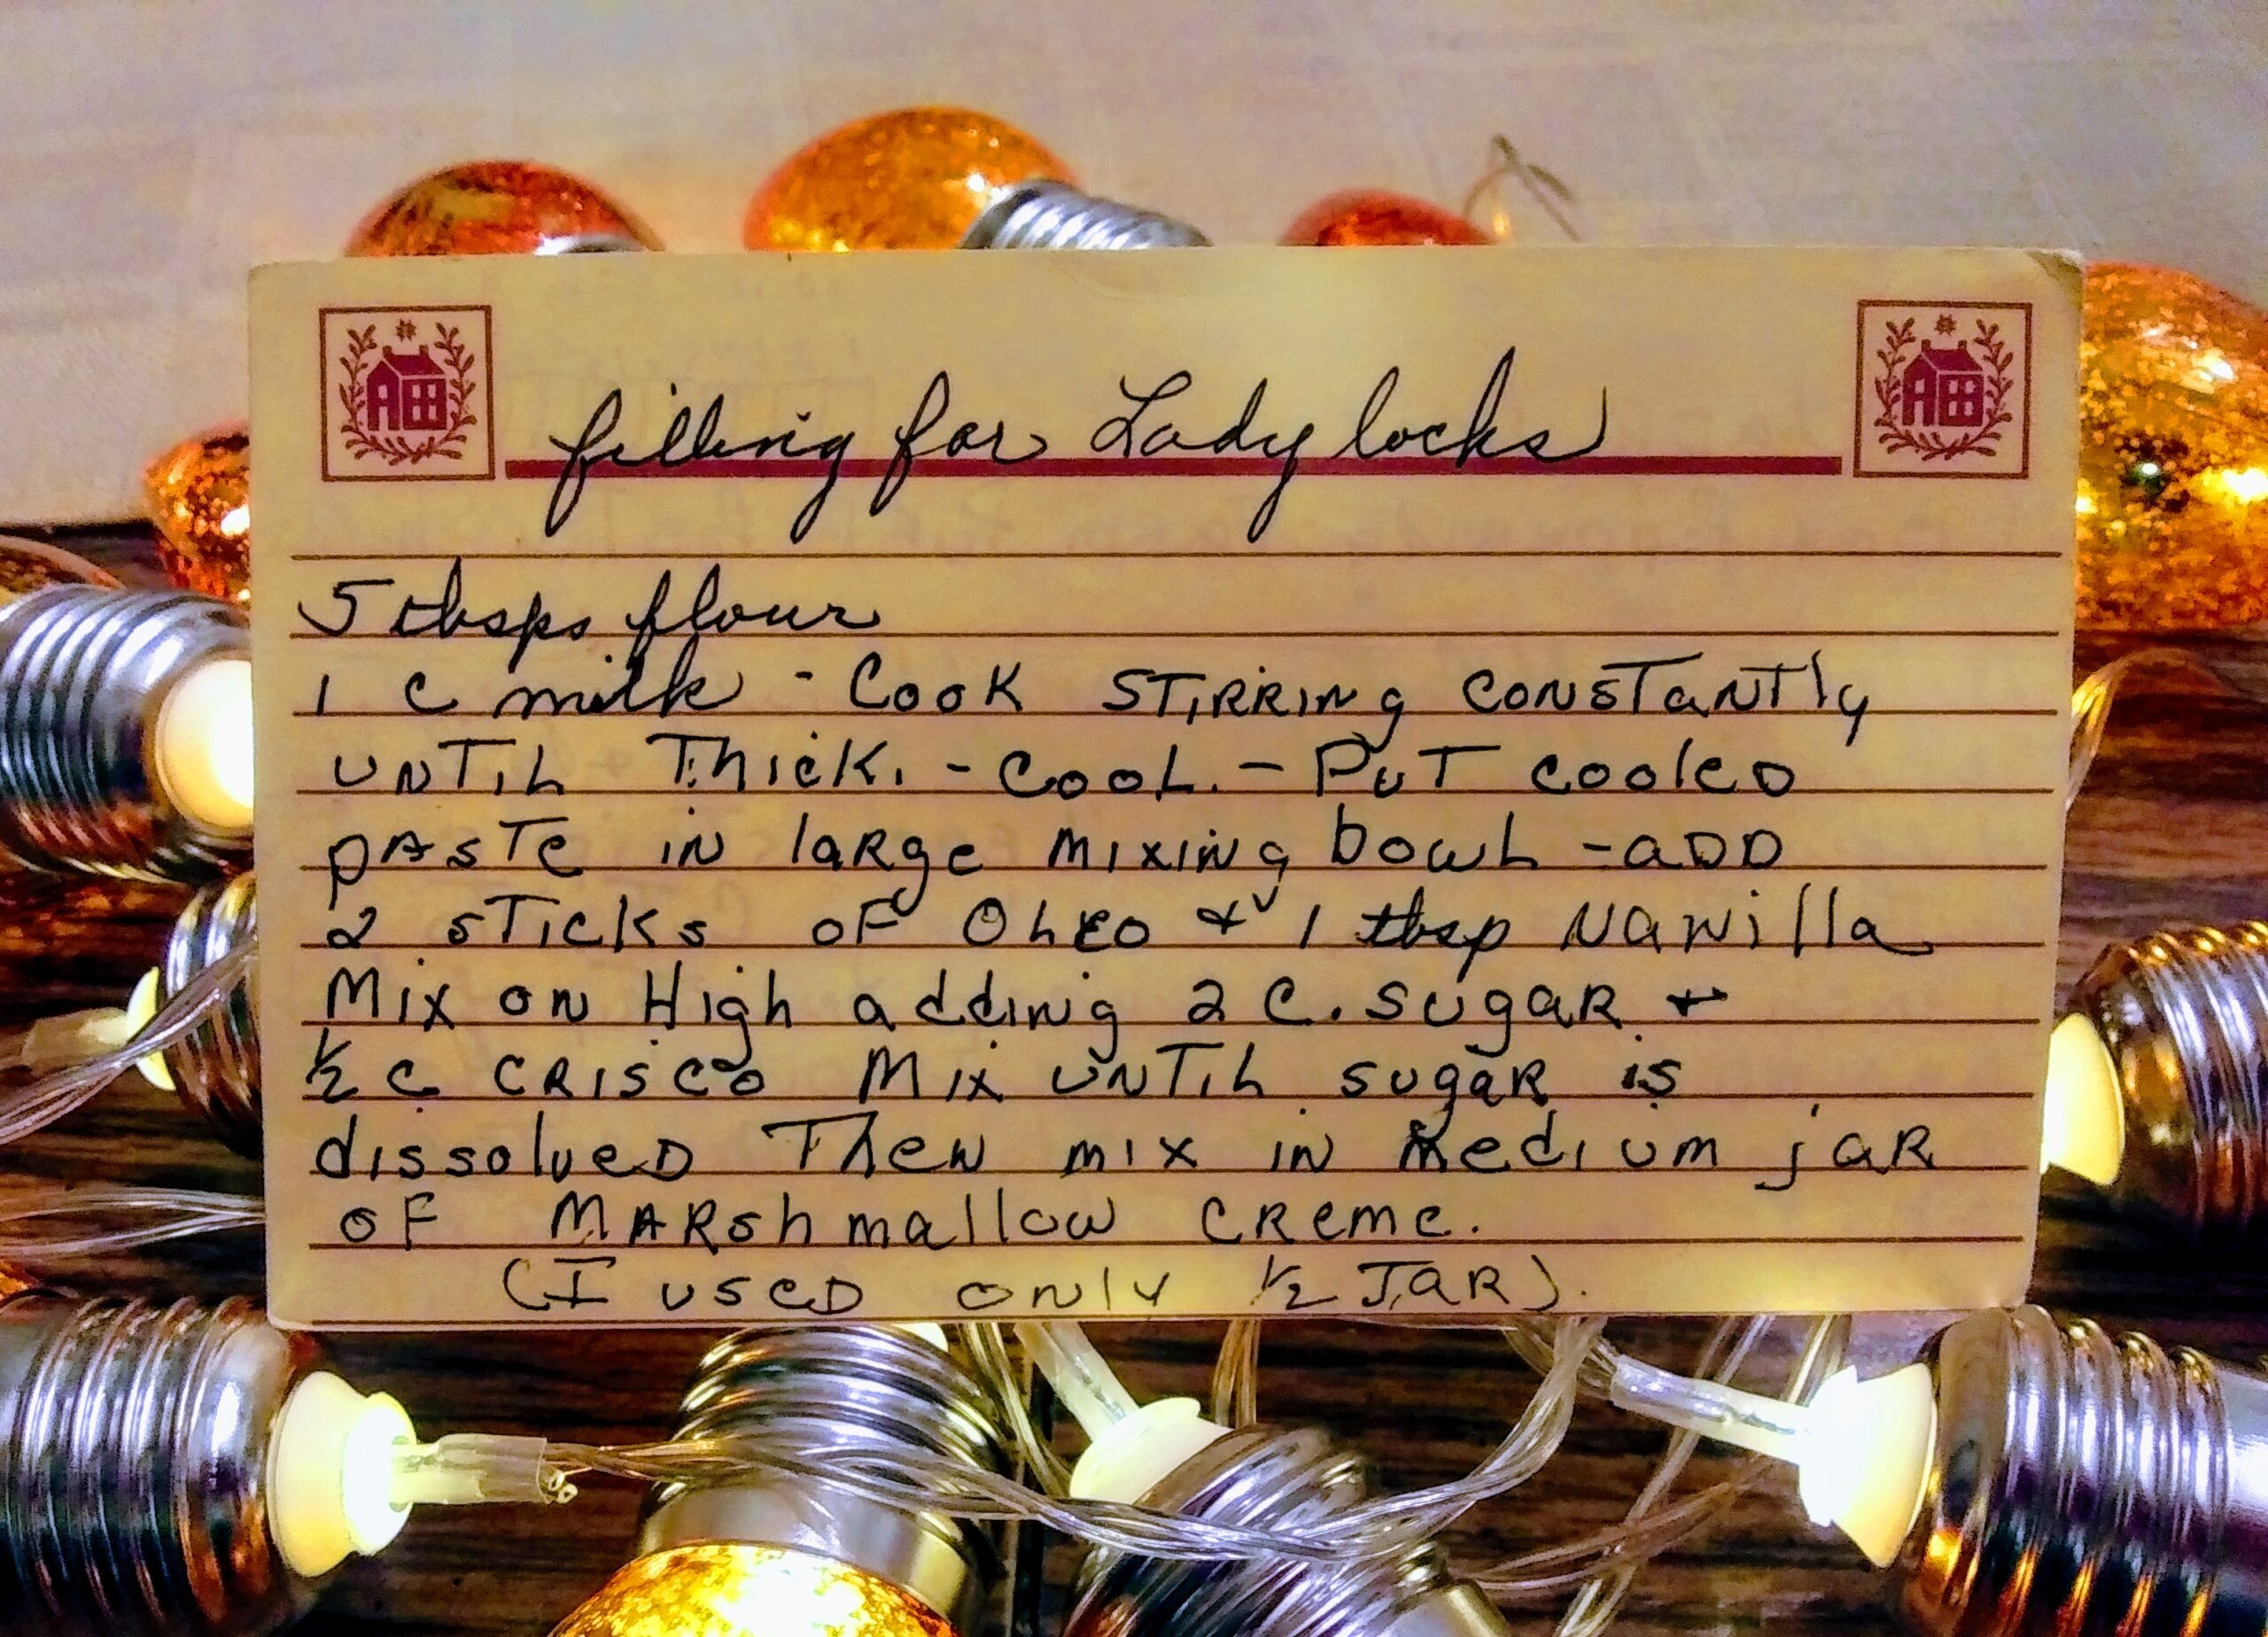 filling for Lady locks
5 tbsps flour
1 C milk - Cook STIRRING CONSTANTly
UNTIL THICK. - COOL. - PUT COOlED
PASTE IN lARge MIXINg bowL - aDD
2 STICKS OF OLEO & 1 tbsp VaNilla
MIX ON HIgh addiNg 2 C. SUgaR &
1/2 C CRISCO MIX UNTIL SUgaR is
dissolveD THeN MIX IN MediUm jaR
OF MARShmallow CReme.
(I USeD ONly 1/2 JaR).